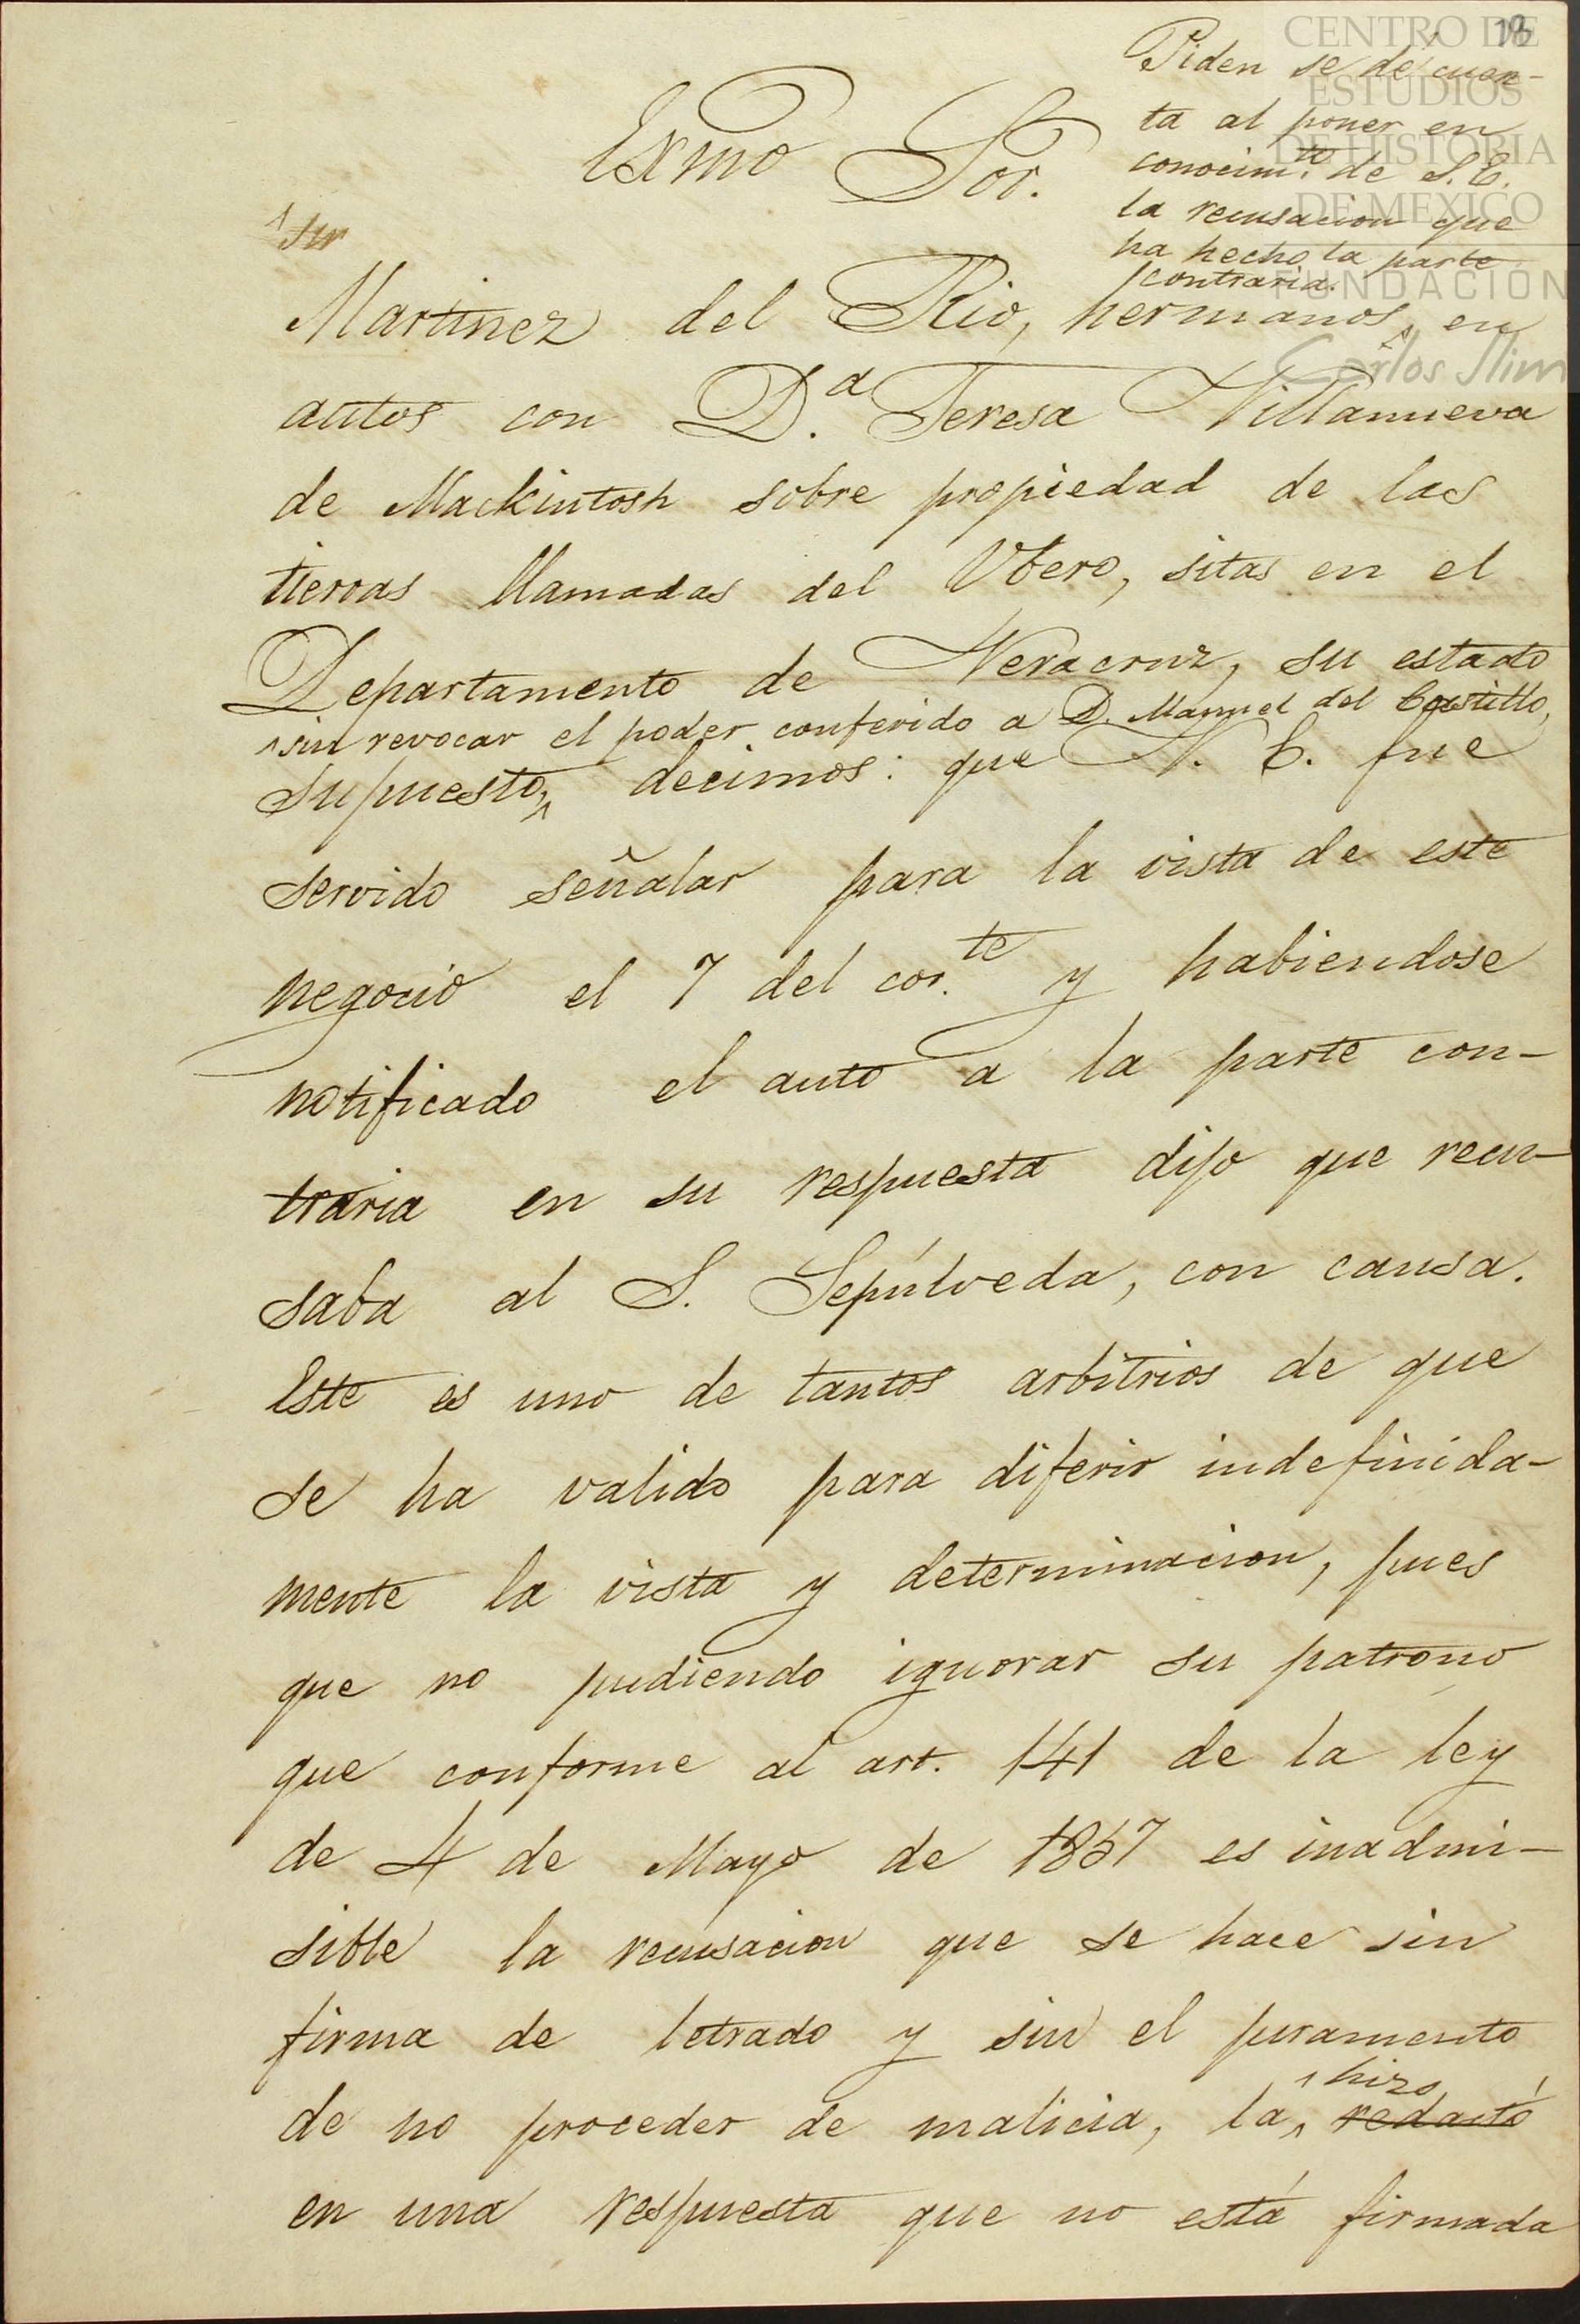 18
Piden se dé cuen-
ta al poner en
conocim.to de S.E.
la recusacion que
ha hecho la parte
contraria.
CENTRO DE
ESTUDIOS
DE HISTORIA
DE MEXICO
FUNDACIÓN
Carlos Slim
Exmo Sor.
Martinez del Rio, hermanos, en
autos con D.a Teresa Villanueva
de Mackintosh sobre propiedad de las
tierras llamadas del Vbero, sitas en el
Departamento de Veracruz, su estado
sin revocar el poder conferido a D. Manuel del Castillo,
supuesto, decimos: que V. E. fue
servido señalar para la vista de este
negocio el 7 del cor.te y habiendose
notificado el auto a la parte con-
traria en su respuesta dijo que recu-
saba al S. Sepúlveda, con causa.
Este es uno de tantos arbitrios de que
se ha valido para diferir indefinida-
mente la vista y determinacion, pues
que no pudiendo ignorar su patrono
que conforme al art. 141 de la ley
de 4 de Mayo de 1857 es inadmi-
sible la recusacion que se hace sin
firma de letrado y sin el juramento
de no proceder de malicia, la hizo redactó
en una respuesta que no está firmada